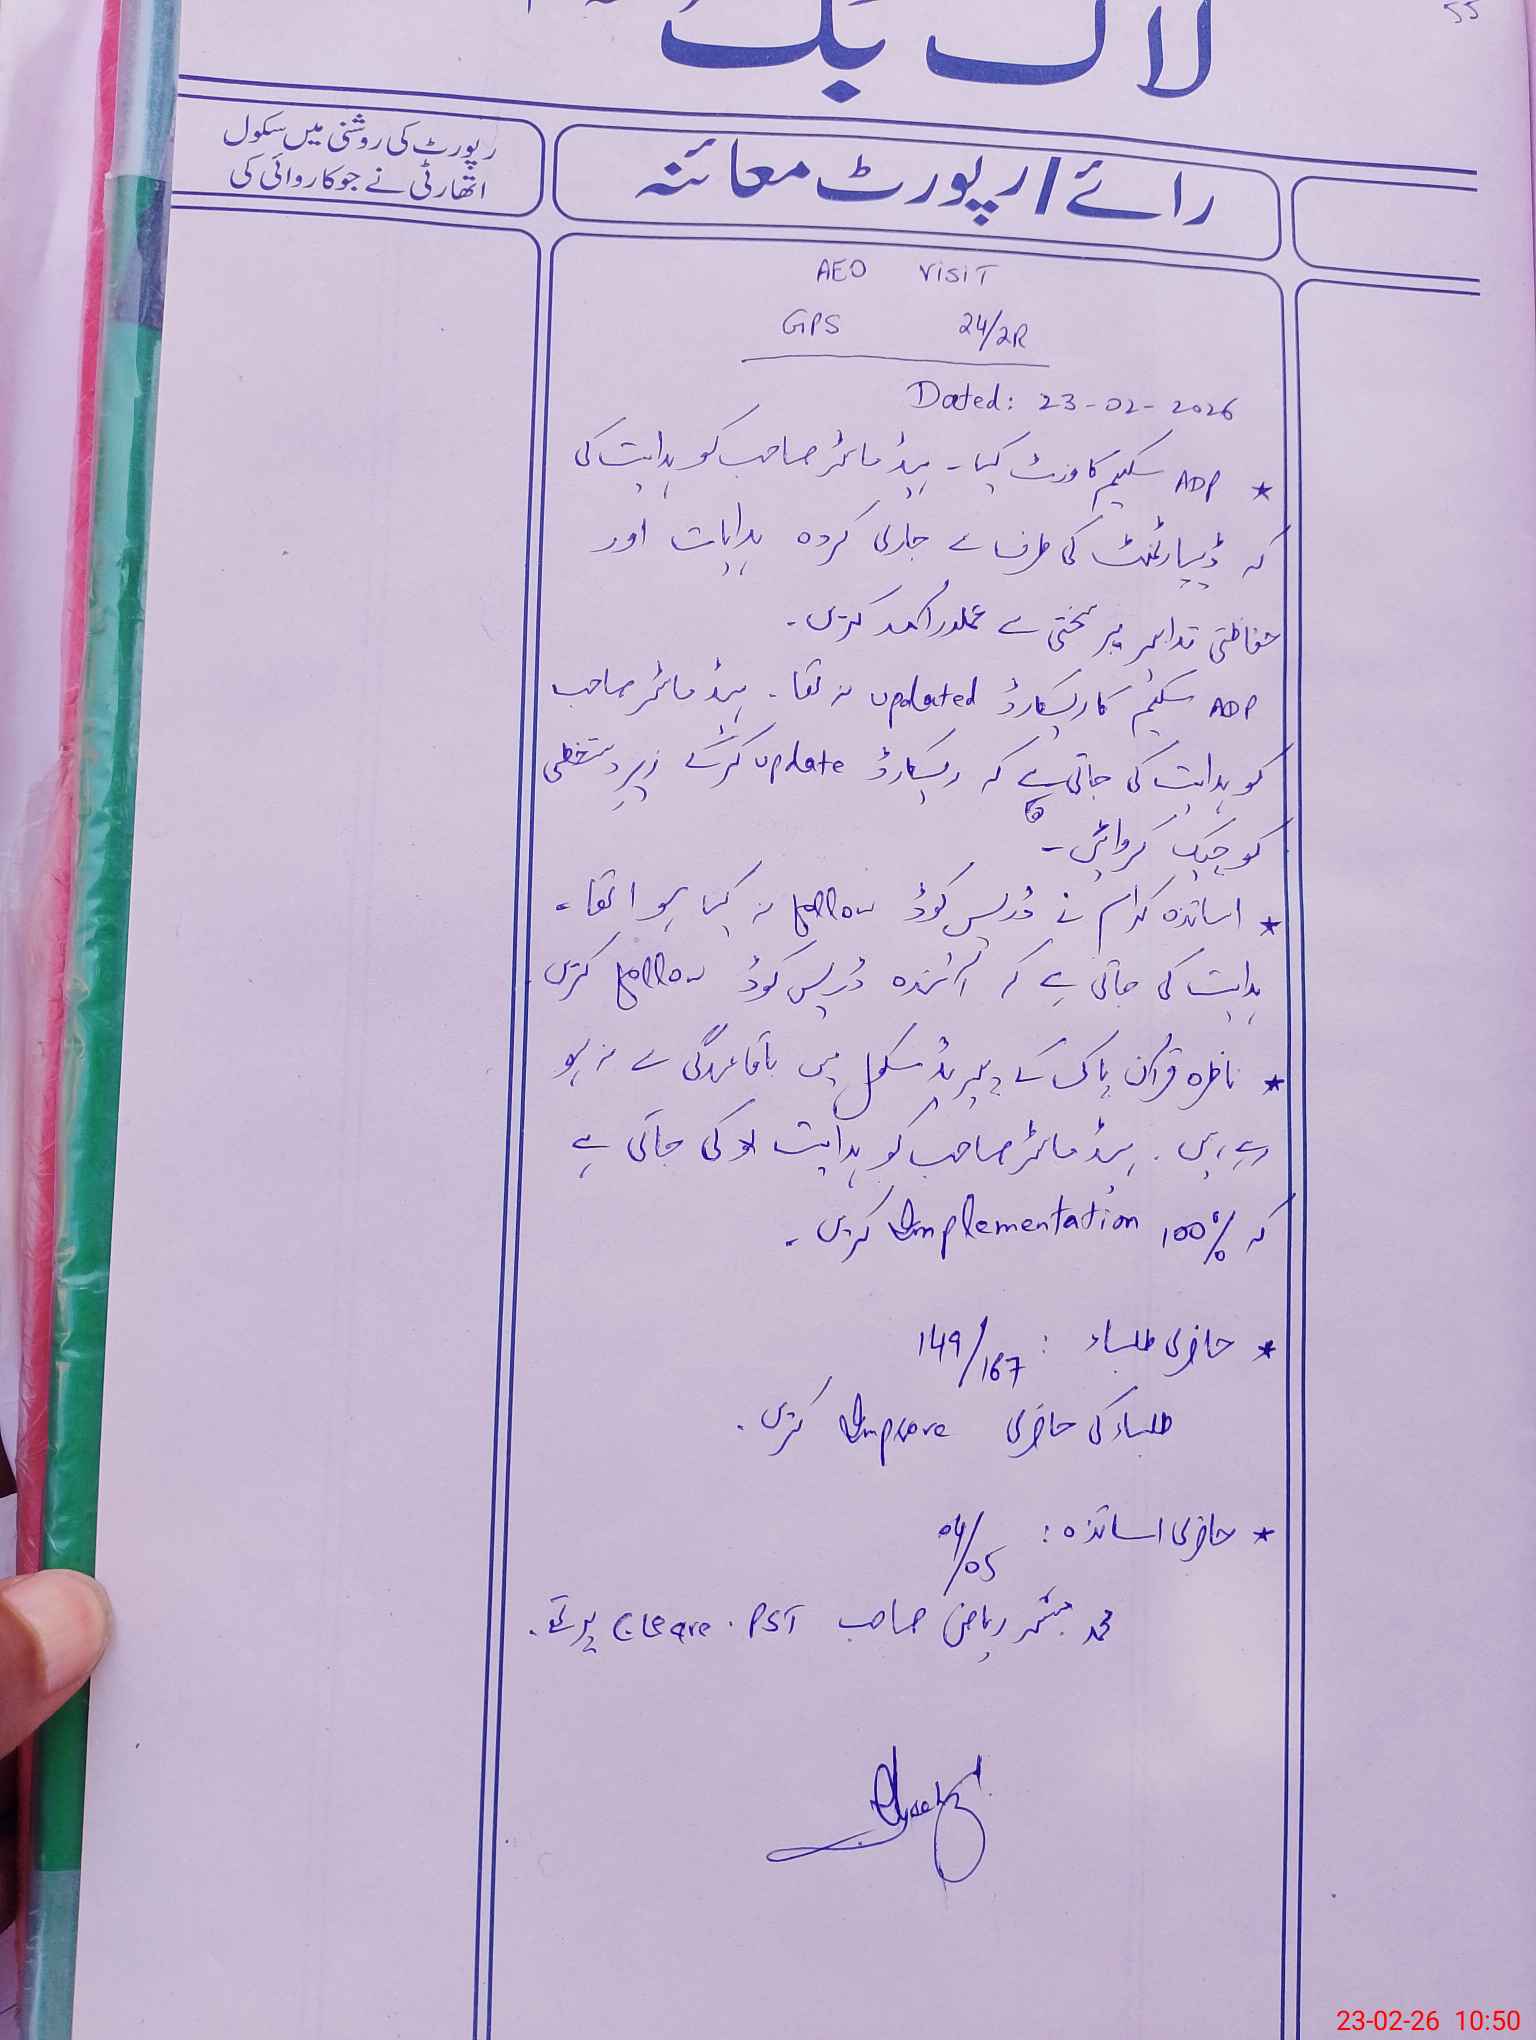 55
لاگ بک
رپورٹ کی روشنی میں سکول
اتھارٹی نے جو کاروائی کی
رائے / رپورٹ معائنہ
AEO VISIT
GPS 24/2R
Dated: 23-02-2026
★ ADP سکیم کا وزٹ کیا۔ ہیڈ ماسٹر صاحب کو ہدایت کی
کہ ڈیپارٹمنٹ کی طرف سے جاری کردہ ہدایات اور
حفاظتی تدابیر پر سختی سے عملدرآمد کریں۔
ADP سکیم کا ریکارڈ updated نہ تھا۔ ہیڈ ماسٹر صاحب
کو ہدایت کی جاتی ہے کہ ریکارڈ update کرکے زیر دستخطی
کو چیک کروائیں۔
★ اساتذہ کرام نے ڈریس کوڈ follow نہ کیا ہوا تھا۔
ہدایت کی جاتی ہے کہ آئندہ ڈریس کوڈ follow کریں
★ ناظرہ قرآن پاک کے پیریڈ سکول میں باقاعدگی سے نہ ہو
رہے ہیں۔ ہیڈ ماسٹر صاحب کو ہدایت کی جاتی ہے
کہ 100% Implementation کریں۔
★ حاضری طلباء : 149/167
طلباء کی حاضری Improve کریں۔
★ حاضری اساتذہ : 04/05
محمد مبشر ریاض صاحب PST C.Leave پر تھے۔
23-02-26 10:50